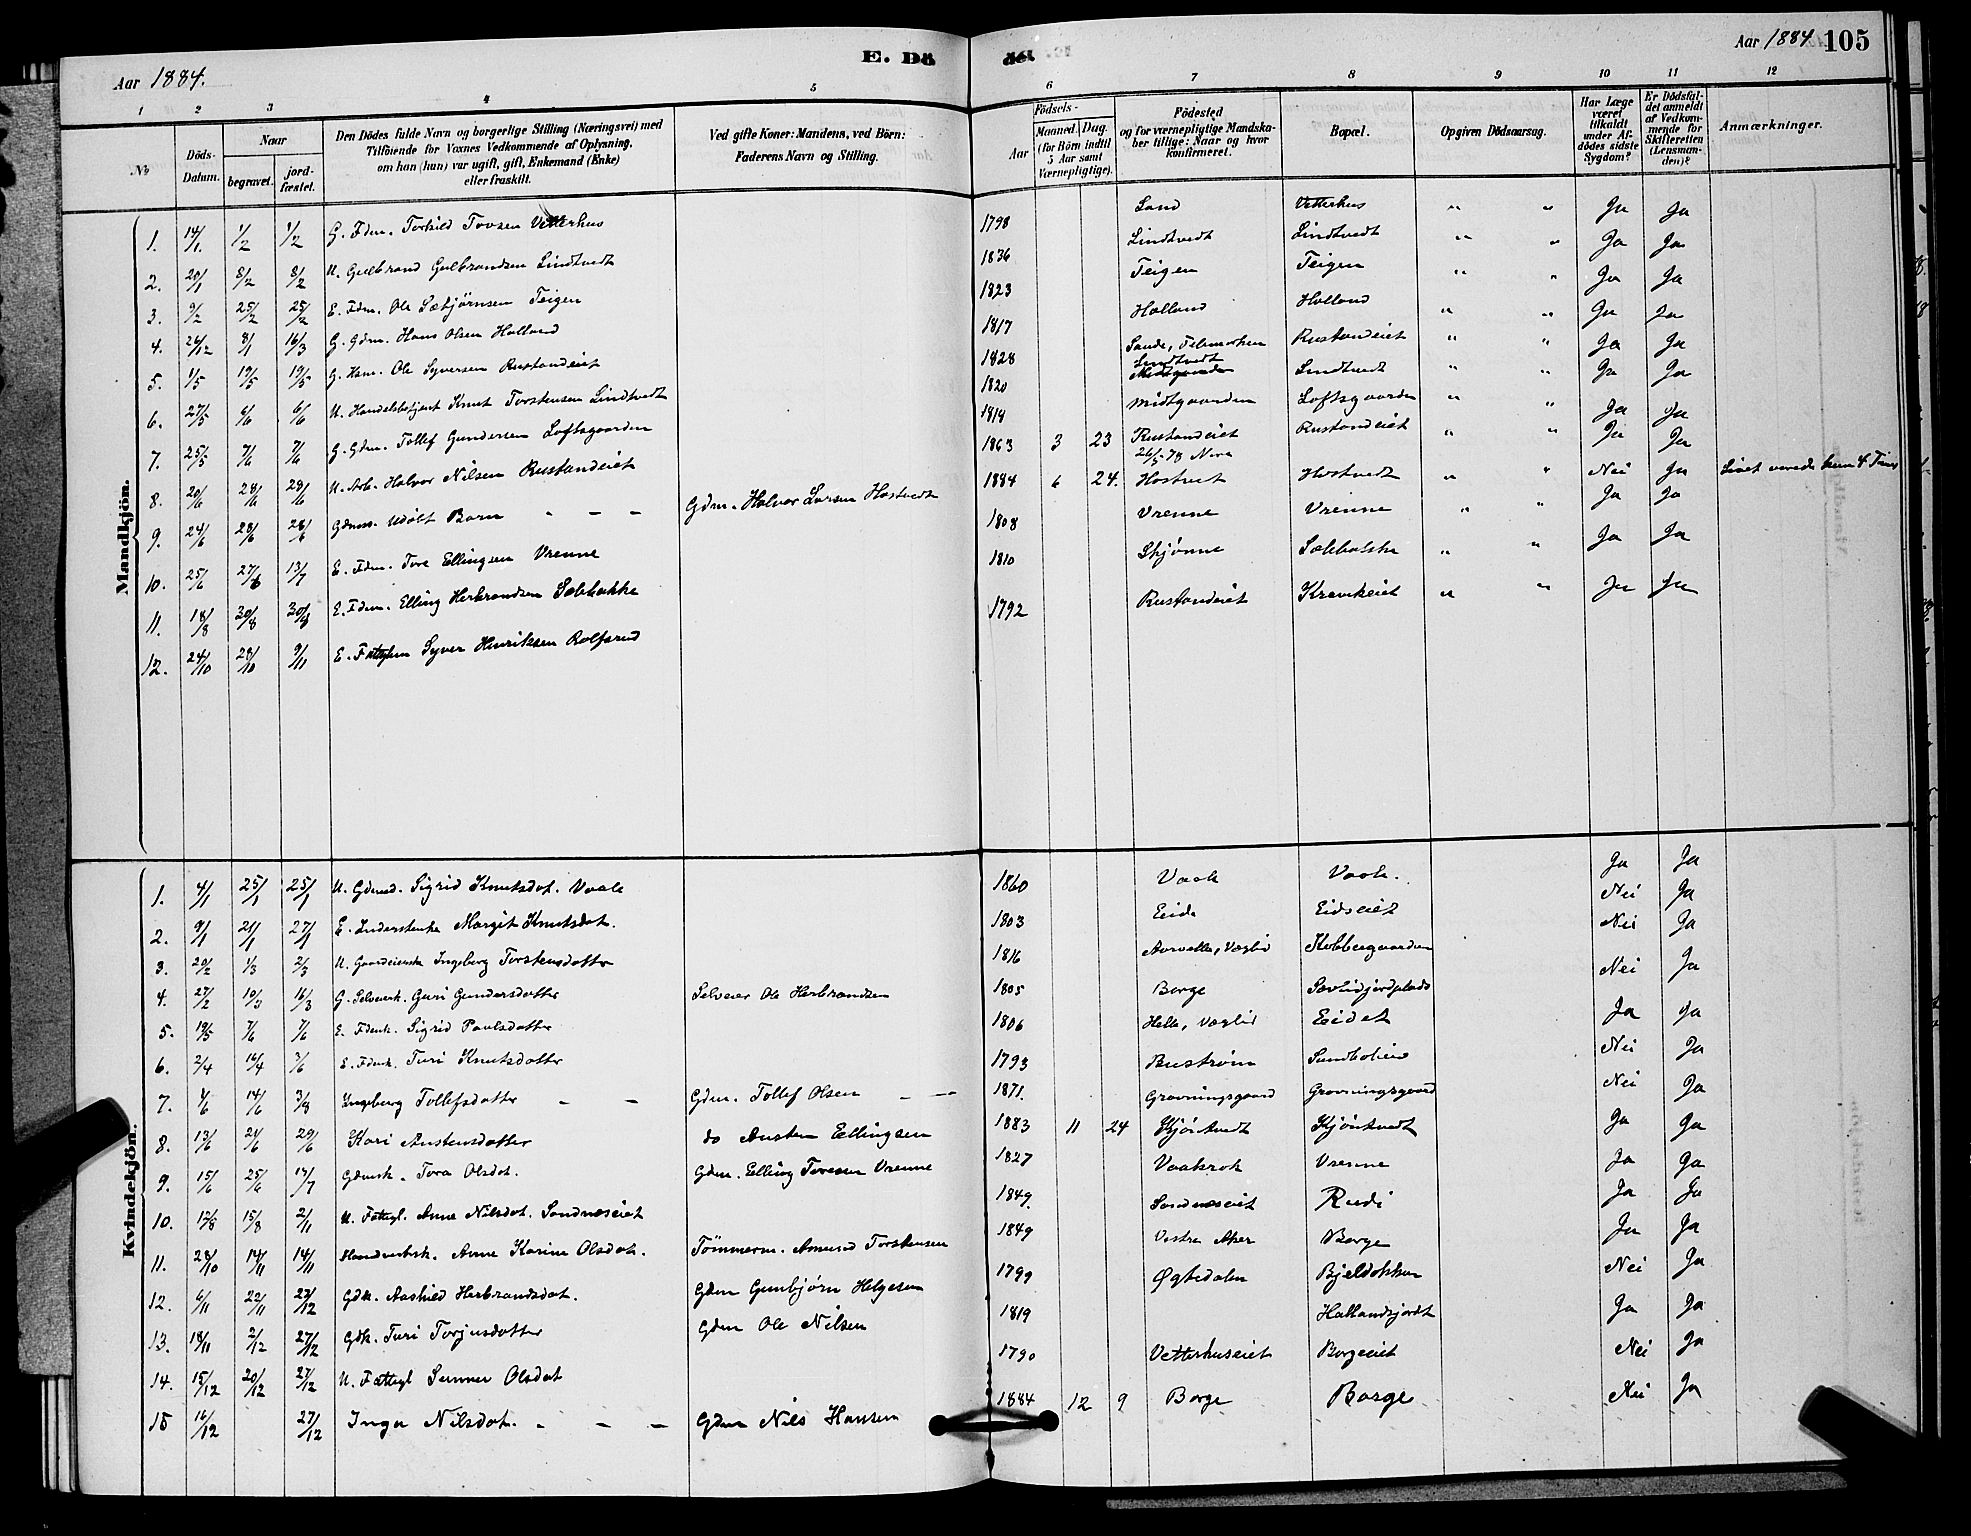 Aar 1884.
E. Dö
1 2 3 4 5
No
Döds-Datum.
Naar
begravet.
jord-fæstet.
Den Dödes fulde Navn og borgerlige Stilling (Næringsvei) med
Tilföiende for Voxnes Vedkommende af Oplysning,
om han (hun) var ugift, gift, Enkemand (Enke)
eller fraskilt.
Ved gifte Koner: Mandens, ved Börn:
Faderens Navn og Stilling.
Mandkjön.
1. 14/1 1/2 1/2 G. Fdm. Torkild Tovsen Vetterhus
2. 20/1 8/2 8/2 U. Gulbrand Gulbrandsen Lindtvedt
3. 9/2 25/2 25/2 E. Fdm. Ole Sebjørnsen Teigen
4. 26/12 8/1 16/3 G. Gdm. Hans Olsen Holland
5. 1/5 19/5 19/5 G. Hsm. Ole Syversen Rustandeiet
6. 27/5 6/6 6/6 U. Handelsbetjent Knut Torstensen Lindtvedt
7. 25/5 7/6 7/6 G. Gdm. Tollef Gundersen Loftsgaarden
8. 20/6 28/6 28/6 U. Arb. Halvor Nilsen Rustandeiet
9. 24/6 28/6 28/6 Gdms. Udöbt Barn " — — Gdm. Halvor Larsen Hostvedt
10. 25/6 27/6 13/7 E. Fdm. Tore Ellingsen Vrenne
11. 18/8 30/8 30/8 E. Fdm. Elling Herbrandsen Solebakke
12. 24/10 28/10 9/11 E. Syver Henriksen Rolfsrud
Kvindekjön.
1. 4/1 25/1 25/1 U. Gdmd. Sigrid Knutsdot. Vaale
2. 9/1 21/1 27/1 E. Inderstenke Margit Knutsdot.
3. 20/2 1/3 2/3 U. Gaardeierske Ingeborg Torstensdotter
4. 27/2 10/3 16/3 G. Selveierk. Guri Gundersdotter Selveier Ole Herbrandsen
5. 19/5 7/6 7/6 E. Fdenk. Sigrid Paulsdotter
6. 2/4 16/4 3/6 E. Fdenk. Turi Knutsdotter
7. 4/6 14/6 3/8 Ingeborg Tollefsdotter — — Gdm. Tollef Olsen — —
8. 13/6 24/6 29/6 Kari Austensdotter do Austen Ellingsen
9. 15/6 25/6 17/7 Gdmsk. Tora Olsdot. Gdm. Elling Toresen Vrenne
10. 12/8 15/8 2/11 U. Fattigl. Anne Nilsdot. Sandnæseiet
11. 28/10 14/11 14/11 Haandverksk. Anne Karine Olsdot. Tömmerm. Amund Torstensen
12. 6/11 22/11 27/12 Gdk. Aashild Herbrandsdot. Gdm Gunbjørn Helgesen
13. 18/11 2/12 27/12 Gdk. Turi Torjusdotter Gdm Ole Nilsen
14. 15/12 20/12 27/12 U. Fattigl Olsdot
15 16/12 27/12 Inga Nilsdot. — — — Gdm Nils Hansen
döl
Aar 1884. 105
6 7 8 9 10 11 12
Födsels-
Aar
Maaned. Dag.
(for Börn indtil
5 Aar samt
Værnepligtige).
Födested
og for værnepligtige Mandska-
ber tillige: Naar og hvor
konfirmeret.
Bopæl.
Opgiven Dödsaarsag.
Har Læge
været
tilkaldt
under Af-
dödes sidste
Sygdom?
Er Dödsfal-
det anmeldt
af Vedkom-
mende for
Skifteretten
(Lensman-
den)?
Anmærkninger.
1798 Sand Vetterhus " " Ja Ja
1836 Lindtvedt Lindtvedt " " Ja Ja
1823 Teigen Teigen " " Ja Ja
1817 Holland Holland " " Ja Ja
1828 Sande, Telemarken Rustandeiet " " Ja Ja
1820 Lindtvedt Lindtvedt " " Ja Ja
Midtgaarden
1814 Midtgaarden Loftsgaarden " " Ja Ja
1863 3 23 Rustandeiet Rustandeiet " " Ja Ja
26/5 78 Nore
1884 6 24. Hostvet Hostvedt " " Nei Ja Livet varede kun 4 Timer
1808 Vrenne Vrenne " " Ja Ja
1810 Skjønne Solebakke " " Ja Ja
1792 Rustandeiet Kravikeiet " " Ja Ja
1860 Vaale Vaale. Ja Ja
1803 Eide Eidseiet Nei Ja
1816 Aasvalle, Væglid Kobbergaarden Nei Ja
1805 Borge Nei Ja
1806 Helle, Væglid Eidet Ja Ja
1793 Bustrøm Nei Ja
1871. Grovningsgaard Grovningsgaard Nei Ja
1883 11 24 Kjøntvedt Kjøntvedt Ja Ja
1827 Vrenne Ja Ja
1849. Sandnæseiet Rudi Ja Ja
1849 Vestre Aker Borge Ja Ja
1799 Øgtedalen Bjeldokken Nei Ja
1819 Hallandsjordet Ja Ja
1790 Vetterhuseiet Borgeeiet Nei Ja
1884 12 9 Borge Borge Nei Ja